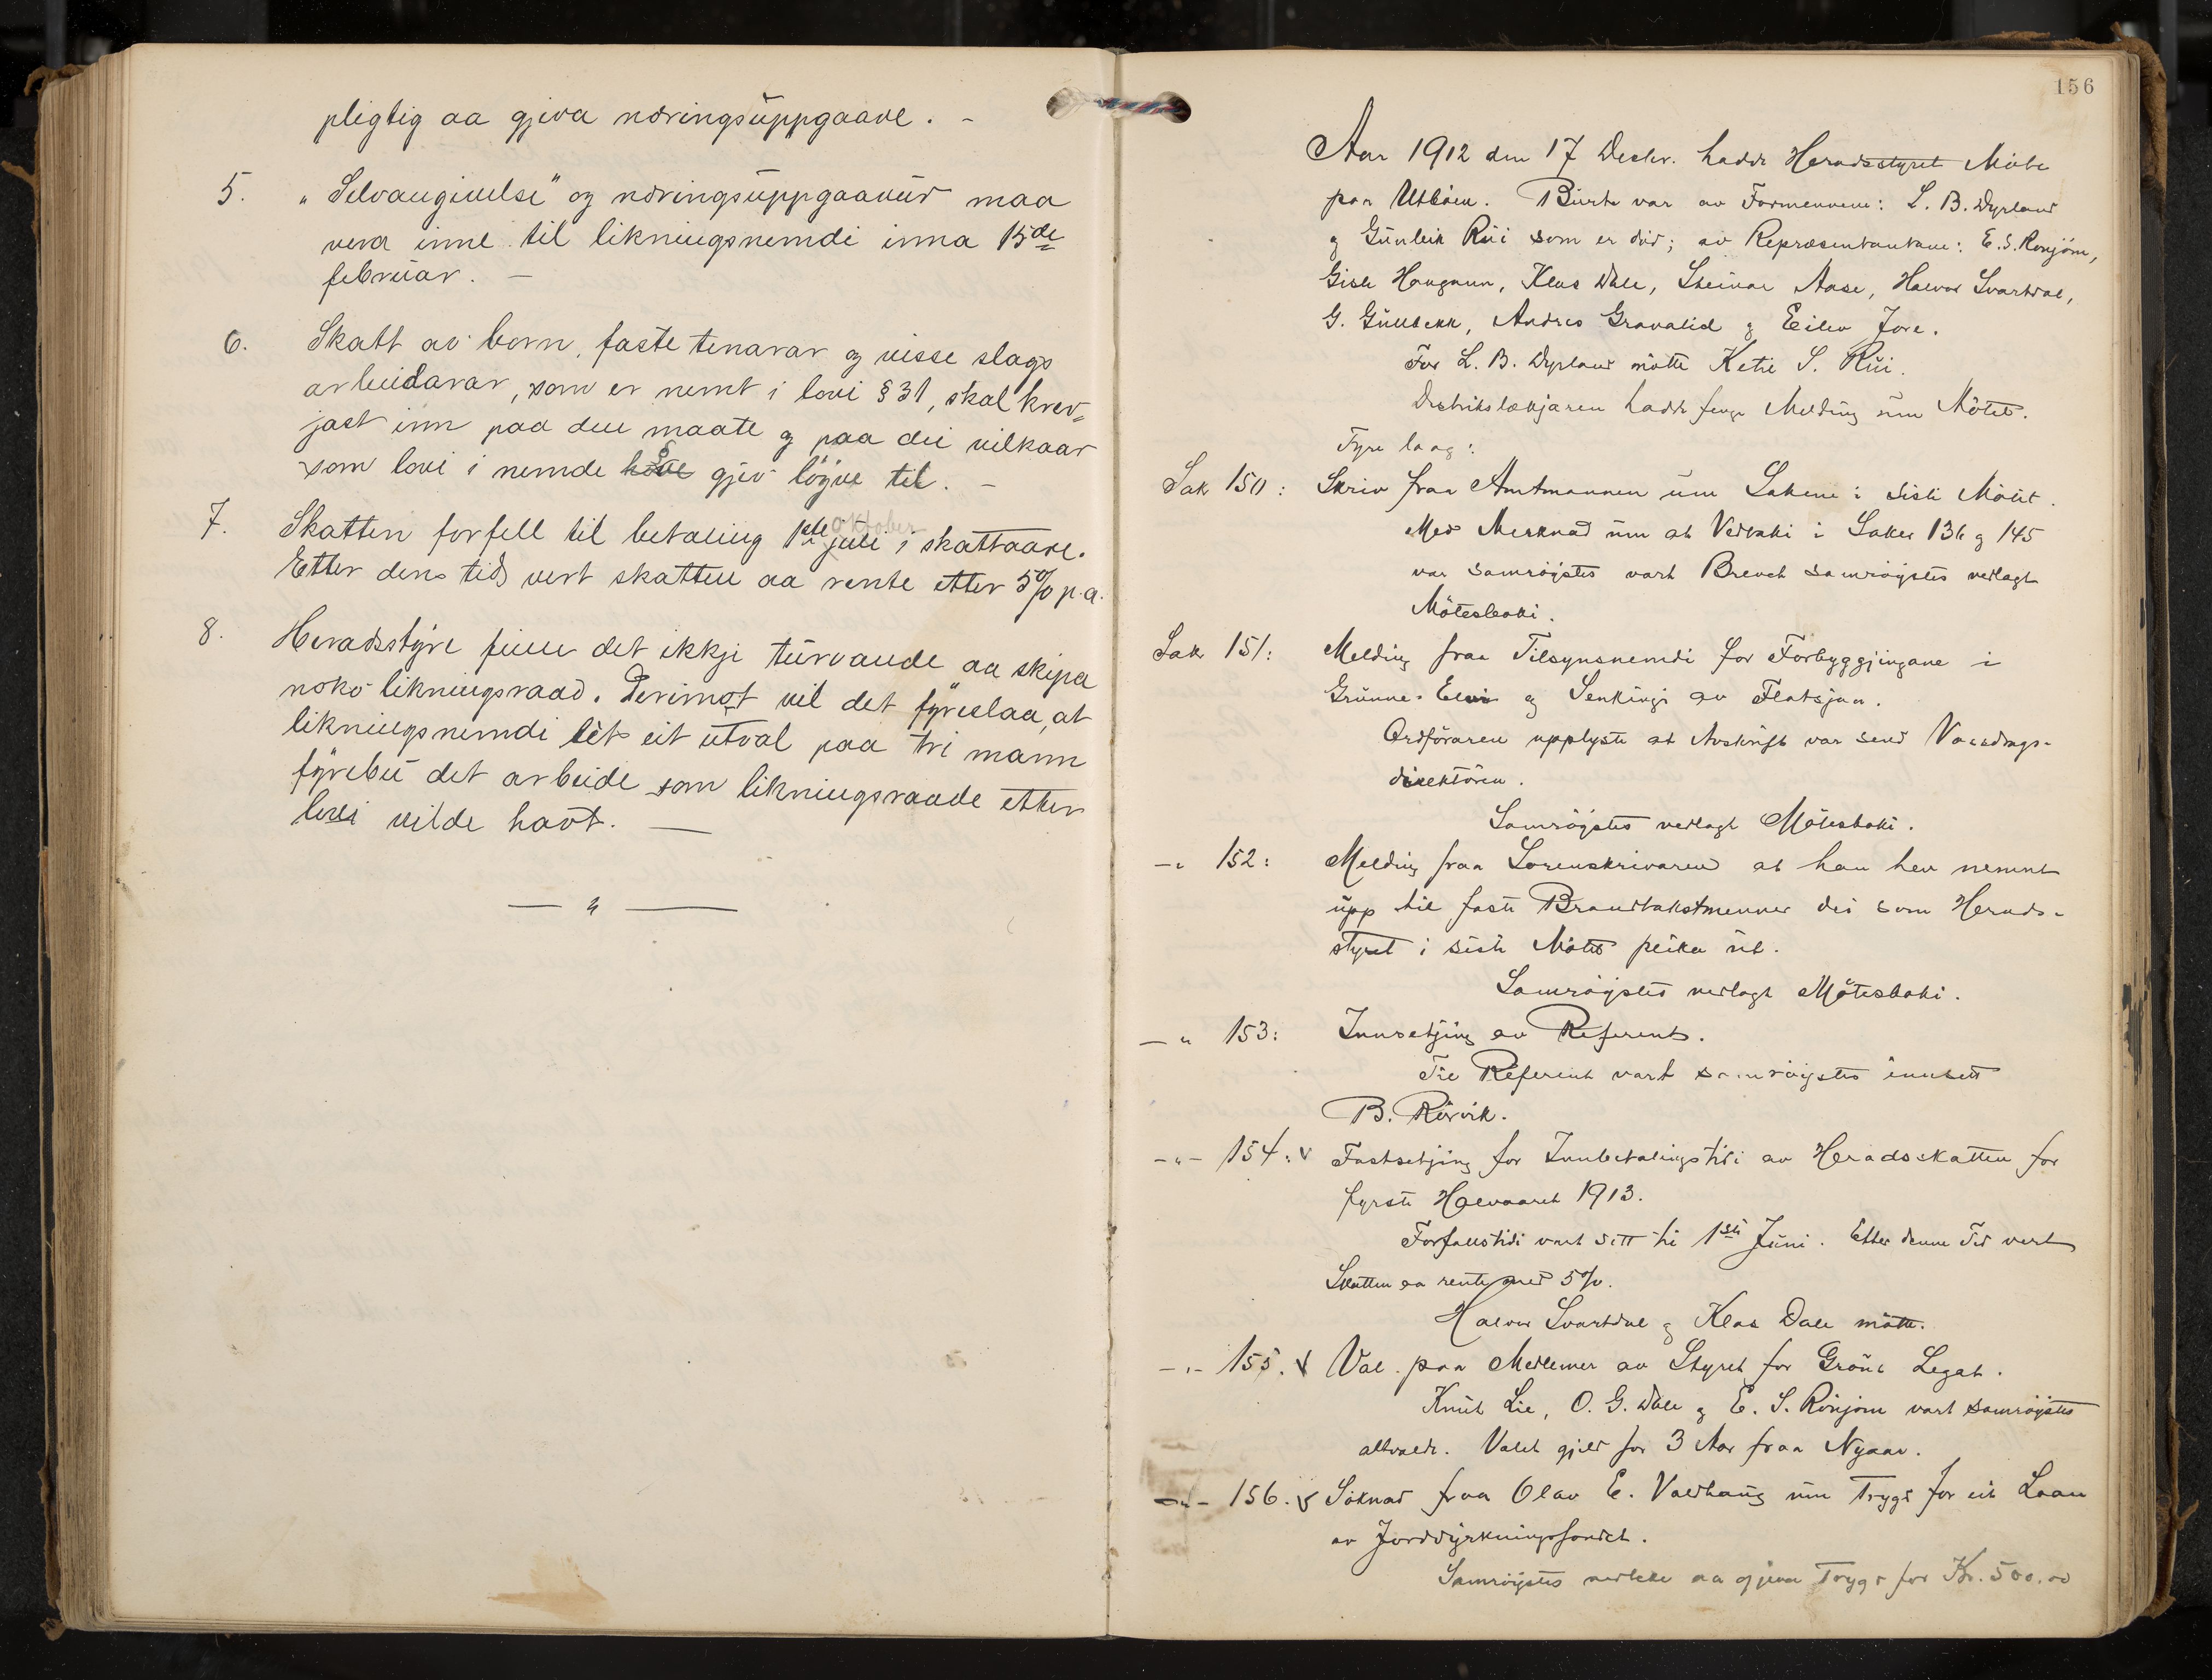 pligtig aa gjeva næringsuppgaave. -
5. "Selvangivelse" og næringsuppgaavur maa
vera inne til likningsnemdi inna 15de
februar. -
6. Skatt av born, faste tenarar og visse slags
arbeidarar, som er nemt i lovi § 31, skal krev=
jast inn paa den maate og paa dei vilkaar
som lovi i nemde § gjev löyve til. -
7. Skatten forfell til betaling 1ste juli oktober i skattaare.
Etter den tid vert skatten aa rente etter 5% p.a.
8. Heradsstyre finn det ikkji turvande aa skipa
noko likningsraad. Derimot vil det fyreslaa, at
likningsnemdi lèt eit utval paa tri mann
fyrebu det arbeide som likningsraade etter
lovi vilde havt. —
— " —
156
Aar 1912 den 17 Desbr. hadde Heradsstyret Möte
paa Utböen. Burte var av Formennene: L. B. Dyrland
og Gunleik Rui som er död; av Repræsentantane: E. S. Ronjöm,
Gisle Haugann, Klas Dale, Steinar Aase, Halvor Svartdal,
G. Gullbekk, Andres Gravalid og Eilev Jore.
For L. B. Dyrland mötte Ketil S. Rui.
Distrikslækjaren hadde fenge Melding um Mötet.
Fyre laag:
Sak 150: Skriv fraa Amtmannen um Sakene i siste Möte.
Med Merknad um at Vedtaki i Saker 136 og 145
var samröystes vart Brevet samröystes vedlagt
Mötesboki.
Sak 151: Melding fraa Tilsynsnemdi for Forbyggjingane i
Grunne-Elvi og Senkingi av Flatsjaa.
Ordföraren upplyste at Avskrift var send Vassdrags-
direktören.
Samröystes vedlagt Mötesboki.
-" 152: Melding fraa Sorenskrivaren at han hev nemnt
upp til faste Brandtakstmenner dei som Herads-
styret i siste Möte peika ut.
Samröystes vedlagt Mötesboki.
- " 153: Innsetjing av Referent.
Til Referent vart samröystes innsett
B. Rörvik.
-"- 154: v Fastsetjing for Innbetalingstidi av Heradsskatten for
fyrste Halvaaret 1913.
Forfallstidi vart sett til 1ste Juni. Etter denne Tid vert
Skatten aa rente med 5%.
Halvor Svartdal og Klas Dale mötte.
-"- 155. v Val paa Medlemer av Styret for Gröne Legat.
Knut Lie, O. G. Dale og E. S. Ronjom vart samröystes
attvalde. Valet gjeld for 3 Aar fraa Nyaar.
-"- 156. v Söknad fraa Olav E. Valhaug um Trygd for eit Laan
av Jorddyrkningsfondet.
Samröystes vedteke aa gjeva Trygd for Kr. 500.00